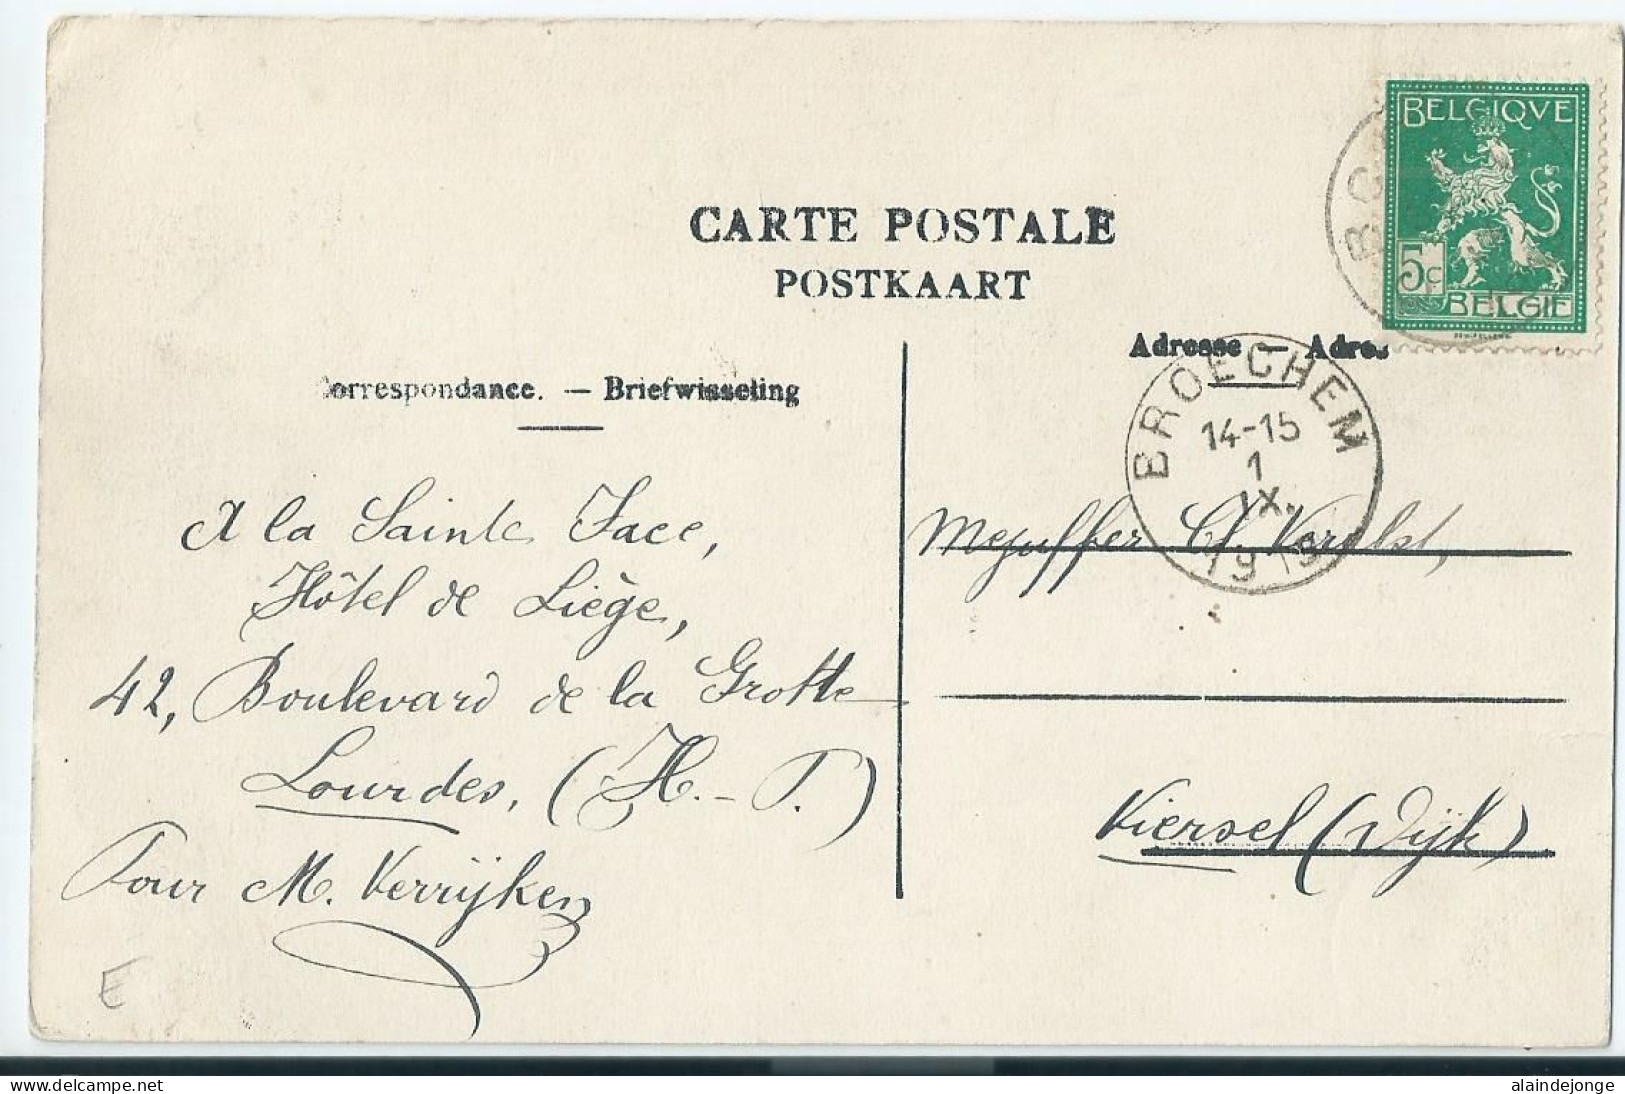 CARTE POSTALE
POSTKAART
BELGIQVE
5c
BELGIE
Correspondance. — Briefwisseling
Adresse — Adres
BROECHEM
14-15
1
IX.
1913
A la Sainte Face,
Hôtel de Liège,
42, Boulevard de la Grotte
Lourdes, (H.-P.)
Pour M. Verrijken
Mejuffer Verelst,
Viersel (Dijk)
E
Delcampe.net
alaindejonge